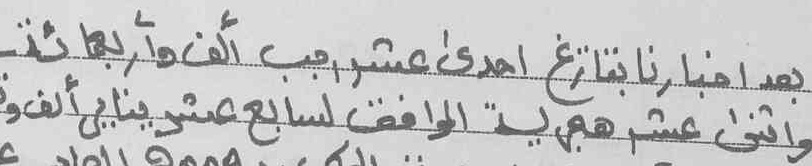 بعد اخبارنا بتاريخ احدى عشر رجب ألف وأربعمائة
واثنى عشر هجرية الموافق لسابع عشر يناير ألف و